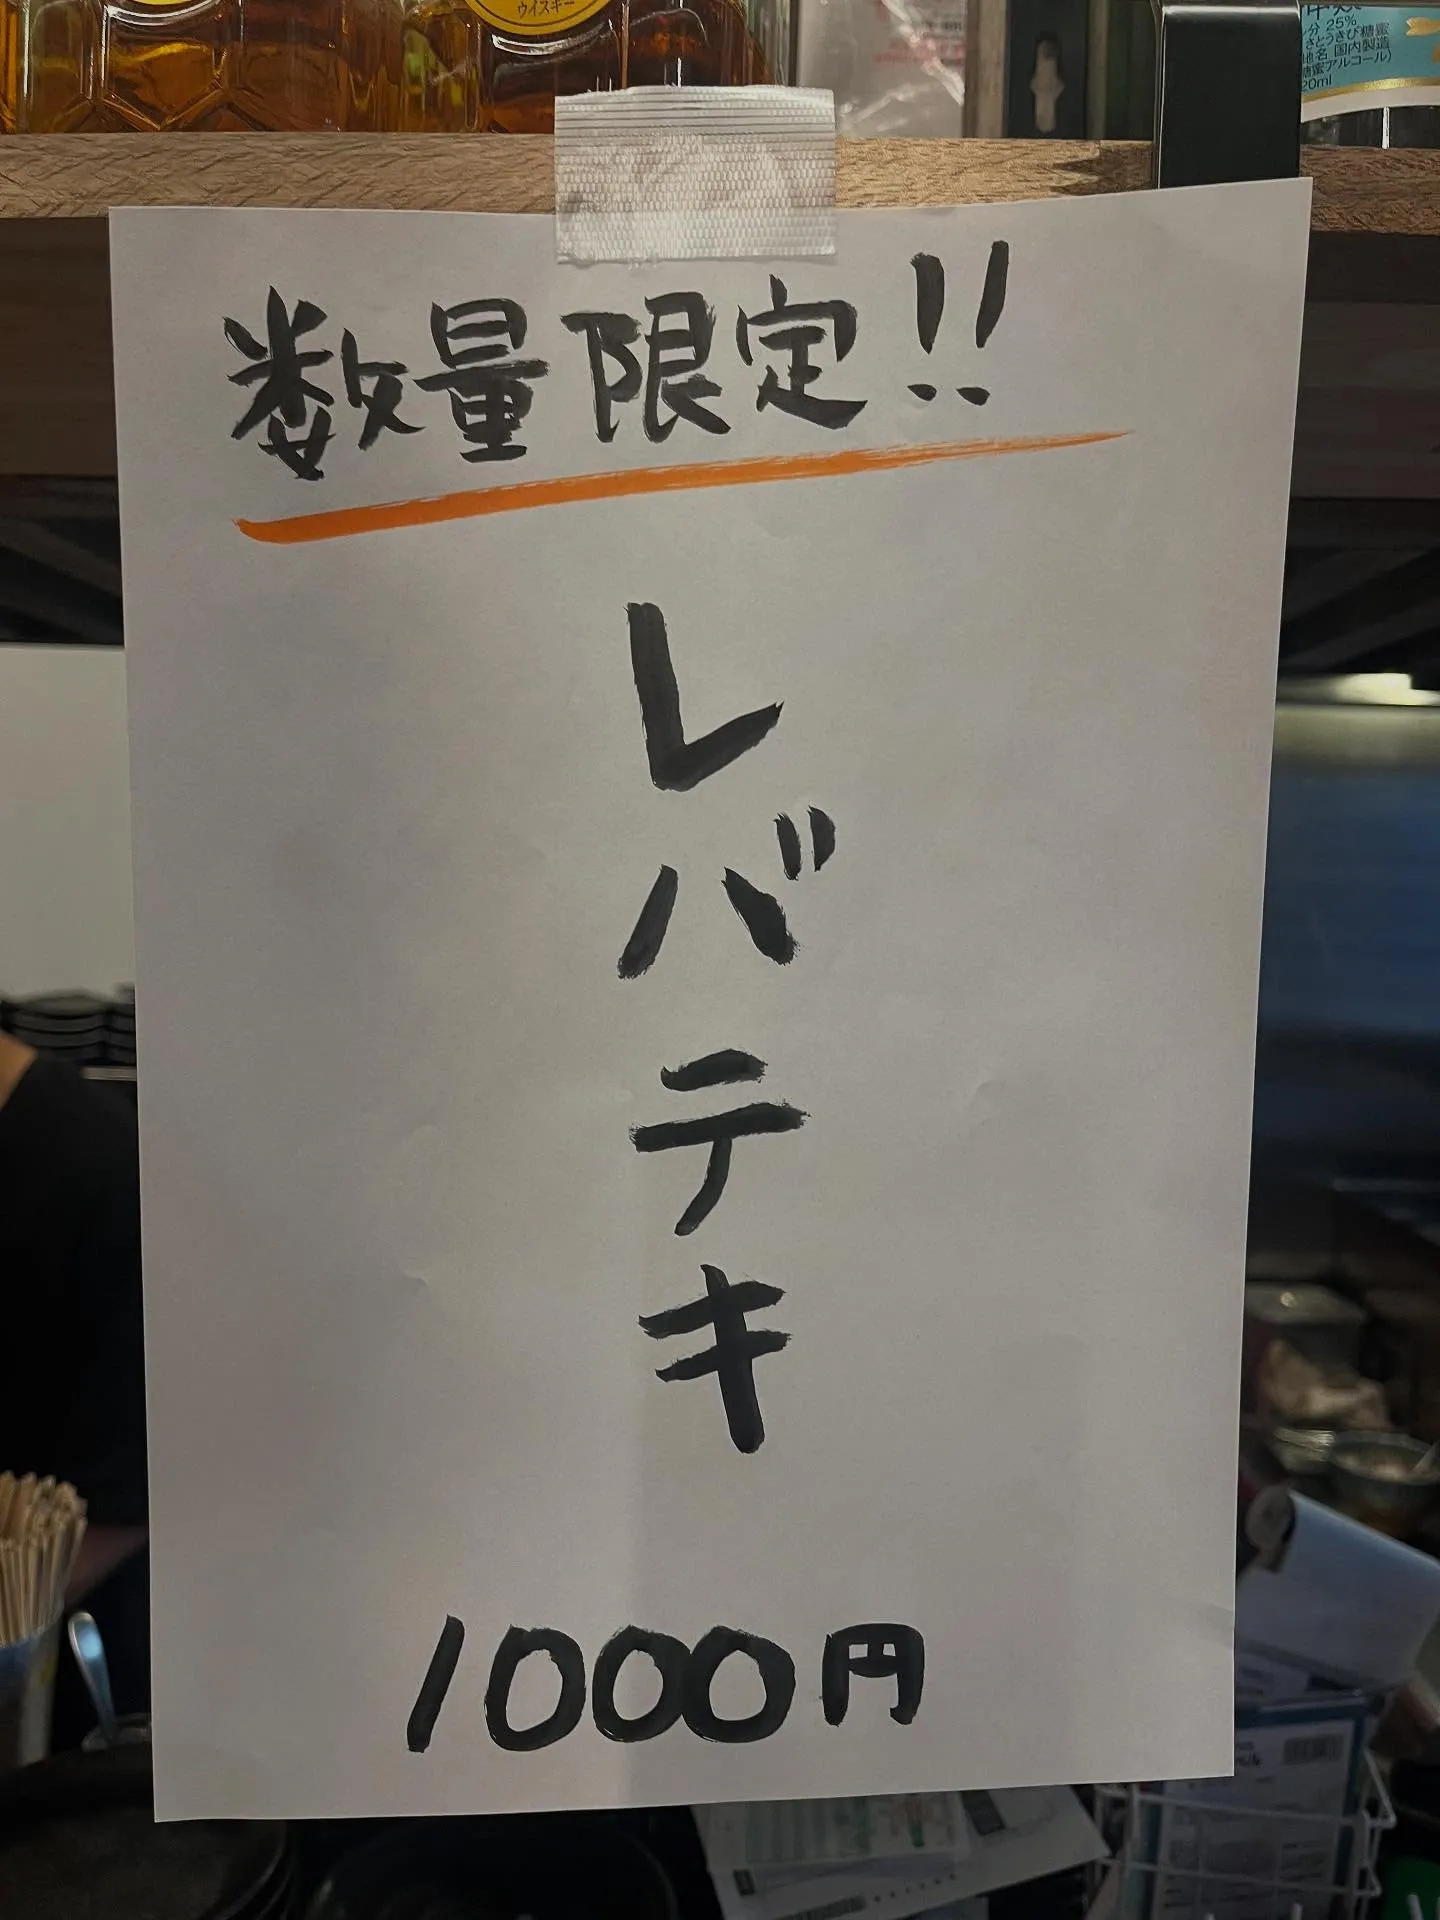 ウイスキー
25%
さとうきび糖蜜
国内製造
糖蜜アルコール)
20ml
数量限定!!
レバテキ
1000円